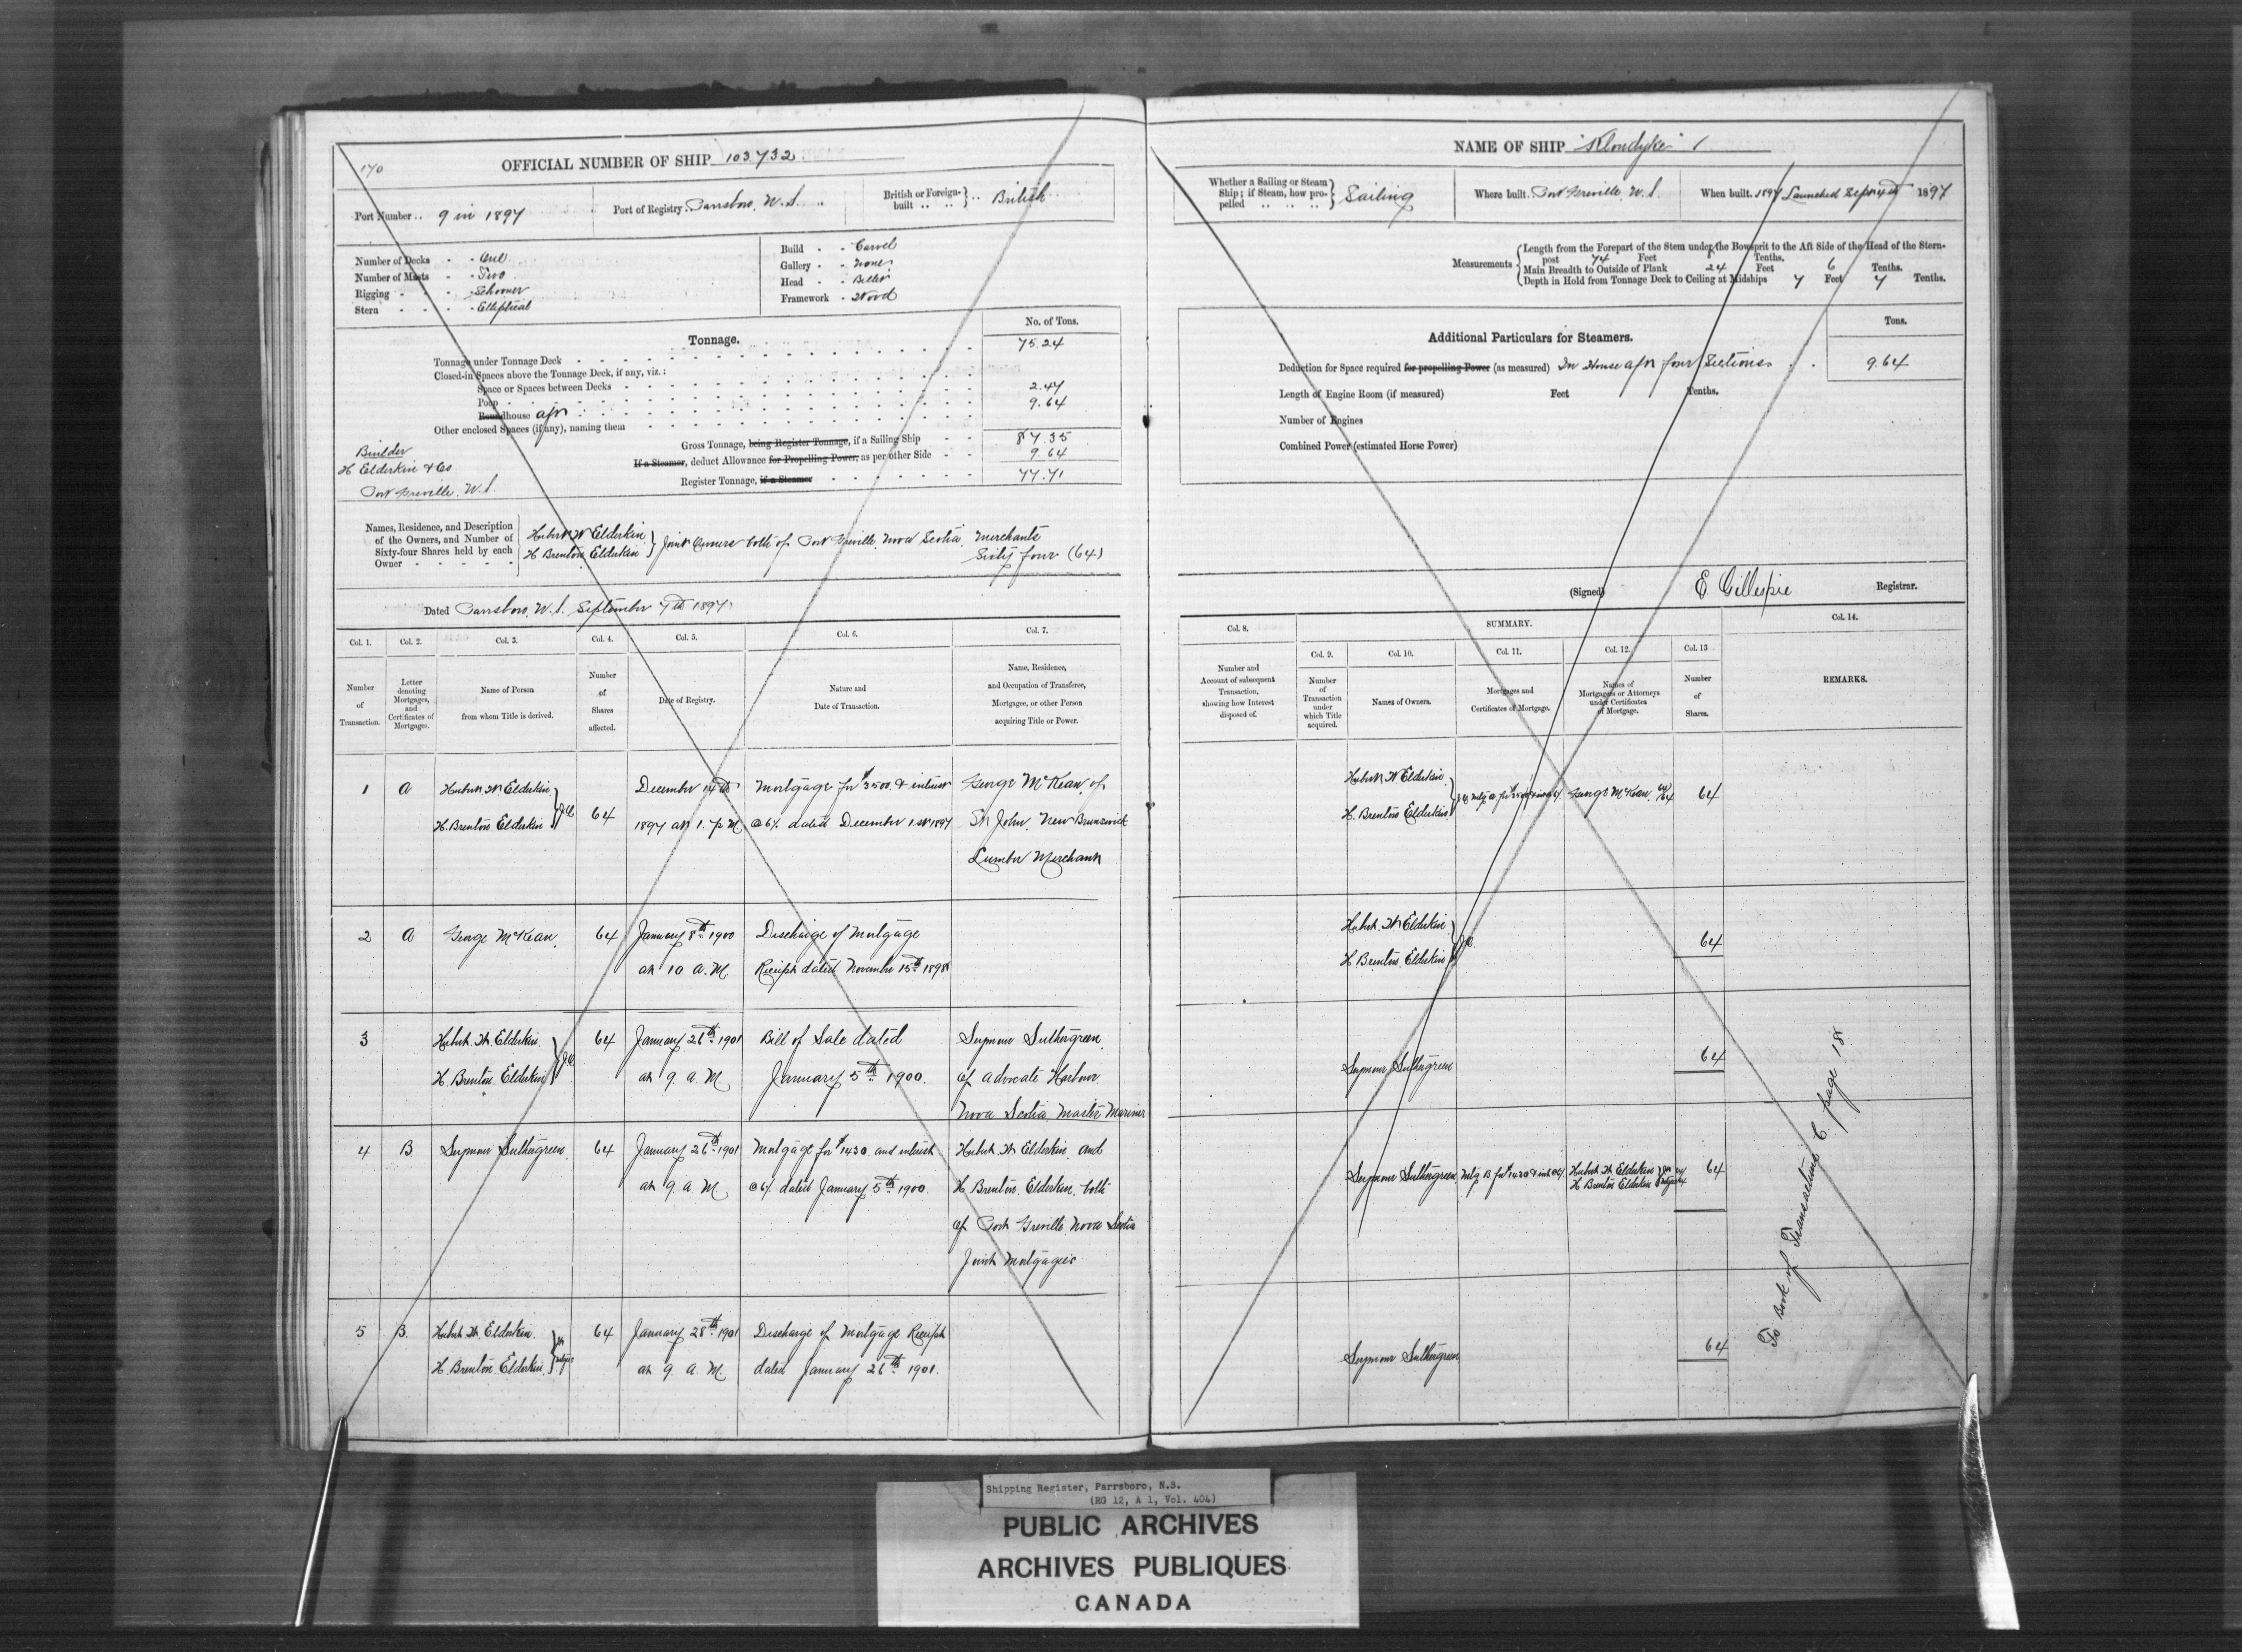 170
OFFICIAL NUMBER OF SHIP 103732
Port Number .. 9 in 1897
Port of Registry. Parrsboro, N.S. ..
British or Foreign-built .. .. } .. British
Number of Decks - - One
Number of Masts - - Two
Rigging - - - - Schooner
Stern - - - - Elliptical
Build - - Carvel
Gallery - - None
Head - - Billet
Framework - Wood
Tonnage.
No. of Tons.
Tonnage under Tonnage Deck 75.24
Closed-in Spaces above the Tonnage Deck, if any, viz.:
Space or Spaces between Decks
Poop 2.47
Roundhouse aft 9.64
Other enclosed Spaces (if any), naming them
Builder
H Elderkin & Co
Port Greville, N.S.
Gross Tonnage, being Register Tonnage, if a Sailing Ship 87.35
If a Steamer, deduct Allowance for Propelling Power, as per other Side 9.64
Register Tonnage, if a Steamer 77.71
Names, Residence, and Description of the Owners, and Number of Sixty-four Shares held by each Owner
Hubert W Elderkin
H Brenton Elderkin } Joint Owners both of Port Greville, Nova Scotia, Merchants
Sixty four (64)
Dated Parrsboro, N.S. September 7th 1897
Col. 1. Col. 2. Col. 3. Col. 4. Col. 5. Col. 6. Col. 7.
Number of Transaction.
Letter denoting Mortgages, and Certificates of Mortgage.
Name of Person from whom Title is derived.
Number of Shares affected.
Date of Registry.
Nature and Date of Transaction.
Name, Residence, and Occupation of Transferee, Mortgagee, or other Person acquiring Title or Power.
1 A Hubert W Elderkin December 14th Mortgage for $3500 & interest George McKean of
H. Brenton Elderkin } J.O. 64 1897 at 1. p M @ 6% dated December 1st 1897 St John, New Brunswick
Lumber Merchant
2 A George McKean 64 January 8th 1900 Discharge of Mortgage
at 10 a.M. Receipt dated November 15th 1898
3 Hubert W. Elderkin 64 January 26th 1901 Bill of Sale dated Seymour Suthergreen
H. Brenton Elderkin } J.O. at 9. a M January 5th 1900. of Advocate Harbour
Nova Scotia Master Mariner
4 B Seymour Suthergreen 64 January 26th 1901 Mortgage for $1430 and interest Hubert W Elderkin and
at 9. a. M. @ 6% dated January 5th 1900. H Brenton Elderkin, both
of Port Greville Nova Scotia
Joint Mortgagees
5 B. Hubert W. Elderkin 64 January 28th 1901 Discharge of Mortgage Receipt
H. Brenton Elderkin at 9. a M. dated January 26th 1901.
NAME OF SHIP "Klondyke"
Whether a Sailing or Steam Ship; if Steam, how propelled .. .. .. } Sailing
Where built. Port Greville, N.S.
When built. 1897 Launched Sept 4th 1897
Measurements
Length from the Forepart of the Stem under the Bowsprit to the Aft Side of the Head of the Stern-
post 74 Feet Tenths.
Main Breadth to Outside of Plank 24 Feet 6 Tenths.
Depth in Hold from Tonnage Deck to Ceiling at Midships 7 Feet 7 Tenths.
Additional Particulars for Steamers.
Tons.
Deduction for Space required for propelling Power (as measured) In House aft four Sections 9.64
Length of Engine Room (if measured) Feet Tenths.
Number of Engines
Combined Power (estimated Horse Power)
(Signed) E Gillespie Registrar.
Col. 8. SUMMARY. Col. 14.
Col. 9. Col. 10. Col. 11. Col. 12. Col. 13
Number and Account of subsequent Transaction, showing how Interest disposed of.
Number of Transaction under which Title acquired.
Names of Owners.
Mortgages and Certificates of Mortgage.
Names of Mortgagees or Attorneys under Certificates of Mortgage.
Number of Shares.
REMARKS.
Hubert W Elderkin
H. Brenton Elderkin George McKean 64/64 64
Hubert W Elderkin
H Brenton Elderkin } J.O. 64
Seymour Suthergreen 64
Seymour Suthergreen Mtg B for $1430 & int @ 6% Hubert W Elderkin
H Brenton Elderkin 64
Seymour Suthergreen 64
To Book of Transactions C. page 18
Shipping Register, Parrsboro, N.S.
(RG 12, A 1, Vol. 404)
PUBLIC ARCHIVES
ARCHIVES PUBLIQUES
CANADA